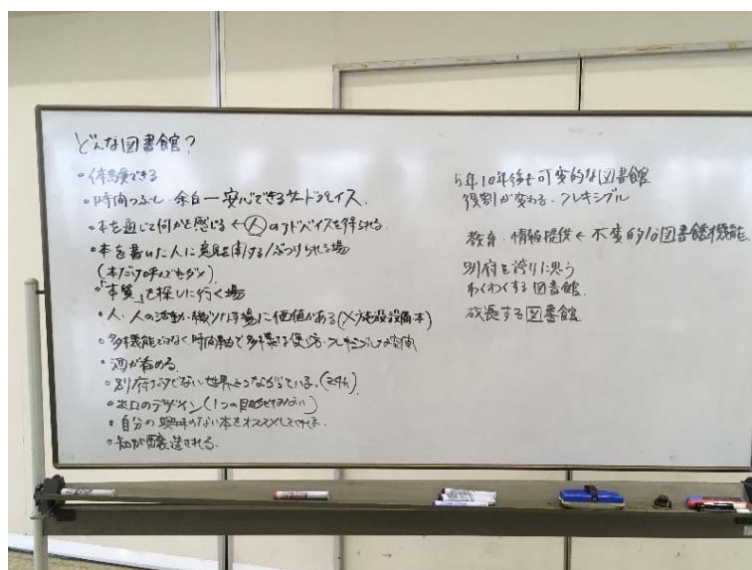 どんな図書館?
・体験できる
・時間つぶし 余白ー安心できるサードプレイス.
・本を通じて何かを感じる←人のアドバイスを得られる.
・本を書いた人に意見を する/ぶつけられる場
(本だけ ダメ)
・「本質」を探しに行く場
・人・人の活動・ 場に価値がある(×施設設備 本)
・多機能ではなく時間軸で多様な使い方・フレキシブルな空間
・酒が呑める.
・別府だけでない世界とつながっている.(24h)
・出口のデザイン(1つの目的 ない)
・自分の興味のない本をオススメしてくれる.
・知が醸造される.
5年10年後も可変的な図書館
役割が変わる・フレキシブル
教育・情報提供←不変的な図書館機能.
別府を誇りに思う
わくわくする図書館.
成長する図書館.